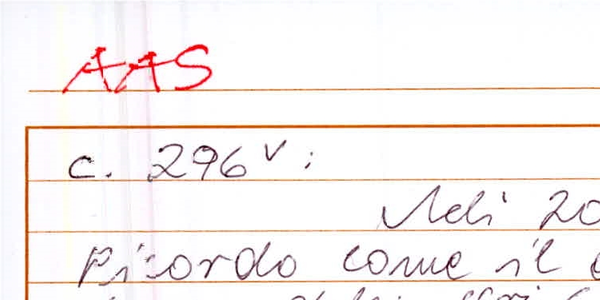 AAS
c. 296v:
Adi 20
Ricordo come il